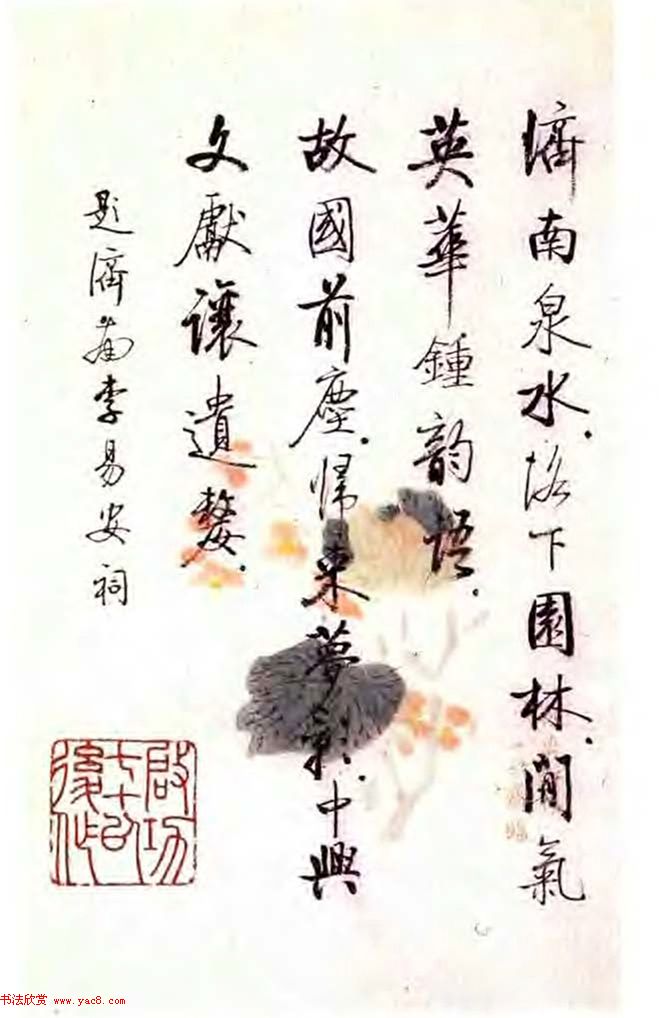 濟南泉水.歷下園林.閒氣
英華鍾韵語.
故國前塵.歸來夢影.中興
文獻讓遺嫠.
題濟南李易安祠
啟功
七十以
後作
书法欣赏 www.yac8.com